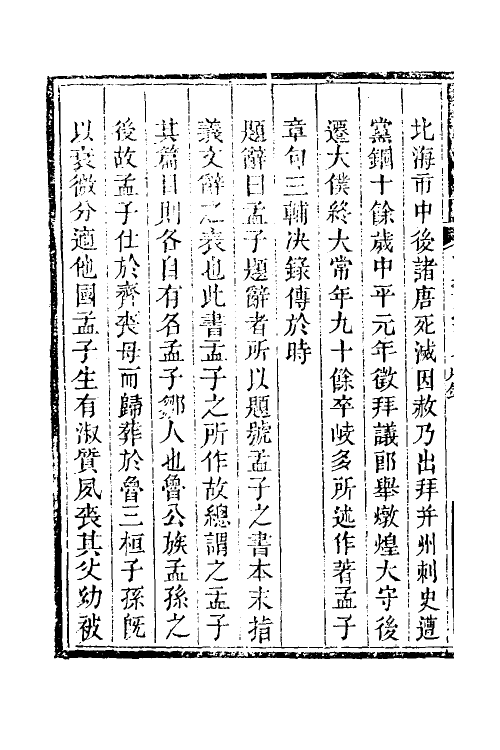 北海市中後諸唐死滅因赦乃出拜并州刺史遭
黨錮十餘歲中平元年徵拜議郎舉燉煌大守後
遷大僕終大常年九十餘卒岐多所述作著孟子
章句三輔決錄傳於時
題辭曰孟子題辭者所以題號孟子之書本末指
義文辭之表也此書孟子之所作故總謂之孟子
其篇目則各自有名孟子鄒人也魯公族孟孫之
後故孟子仕於齊喪母而歸葬於魯三桓子孫旣
以衰微分適他國孟子生有淑質夙喪其父幼被